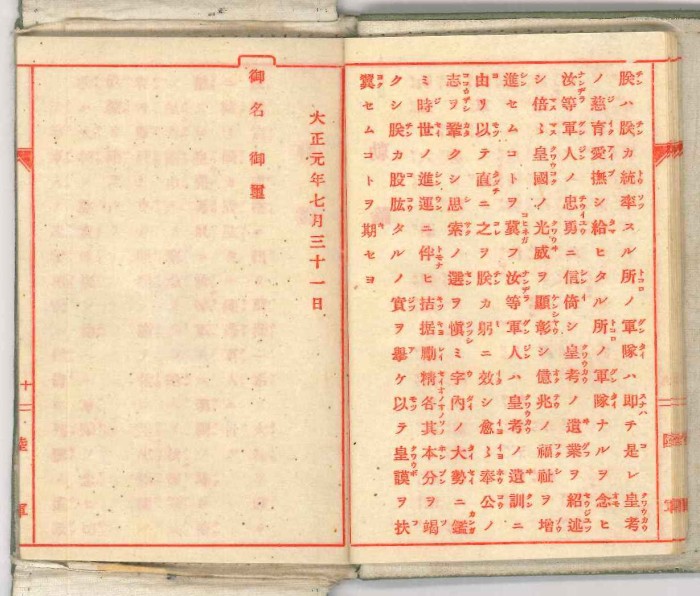 朕ハ朕カ統率スル所ノ軍隊ハ即チ是レ皇考
ノ慈育愛撫シ給ヒタル所ノ軍隊ナルヲ念ヒ
汝等軍人ノ忠勇ニ信倚シ皇考ノ遺業ヲ紹述
シ倍〻皇國ノ光威ヲ顯彰シ億兆ノ福祉ヲ增
進セムコトヲ冀フ汝等軍人ハ皇考ノ遺訓ニ
由リ以テ直ニ之ヲ朕カ躬ニ效シ愈〻奉公ノ
志ヲ鞏クシ思索ノ選ヲ愼ミ宇內ノ大勢ニ鑑
ミ時世ノ進運ニ伴ヒ拮据勵精各其本分ヲ竭
クシ朕カ股肱タルノ實ヲ擧ケ以テ皇謨ヲ扶
翼セムコトヲ期セヨ
大正元年七月三十一日
御名御璽
十
陸軍